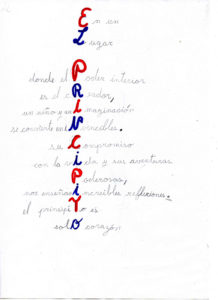 En un
Lugar
donde el Poder interior
es el cReador,
un niño y su Imaginación
se convierte en
su Compromiso
con la vIda y sus aventuras
Poderosas,
nos enseñan Increíbles reflexiones.
el principiTo es
solo cOrazón